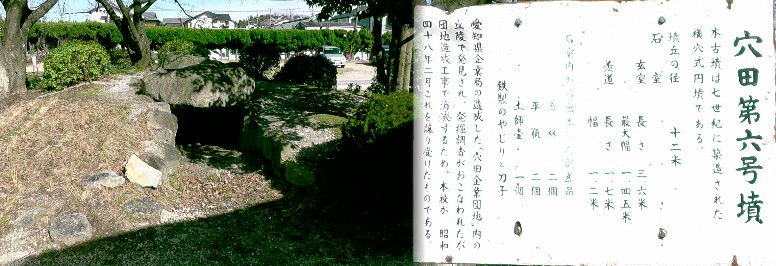 穴田第六号墳
本古墳は七世紀に築造された
横穴式円墳である。
墳丘の径 十二米
石室
玄室 長さ 三・六米
最大幅 一・四五米
羨道 長さ 一・七米
幅 一・二米
平瓶 二個
土師壺 一個
鉄製のやじりと刀子
愛知県企業局の造成した「穴田企業団地」内の
丘陵で発見され、発掘調査がおこなわれたが
団地造成工事で消滅するため、本校が 昭和
四十八年二月これを譲り受けたものである